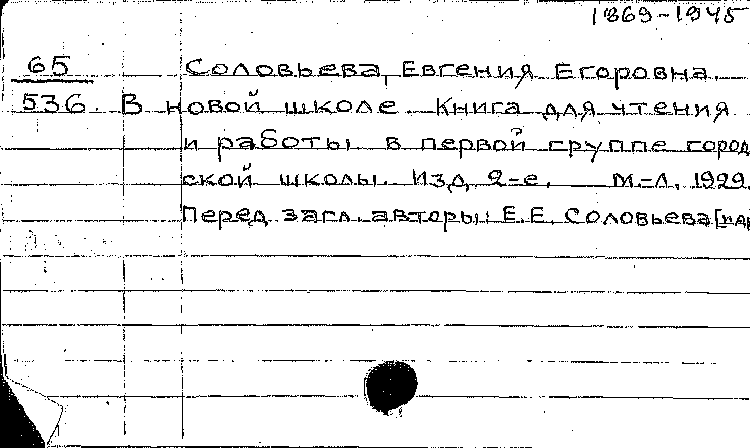 1869-1945
65 Соловьева, Евгения Егоровна.
536. В новой школе. Книга для чтения
и работы в первой группе город
ской школы. Изд. 2-е. М.-Л. 1929.
Перед загл. авторы: Е.Е. Соловьева [и др